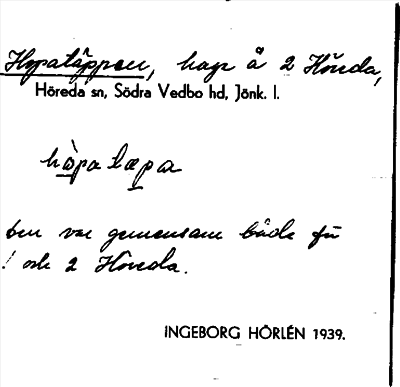 Hopatäppan, hage å 2 Höreda,
Höreda sn, Södra Vedbo hd, Jönk. l.
hòpa tæpa
den var gemensam både för
1 och 2 Höreda.
INGEBORG HÖRLÉN 1939.